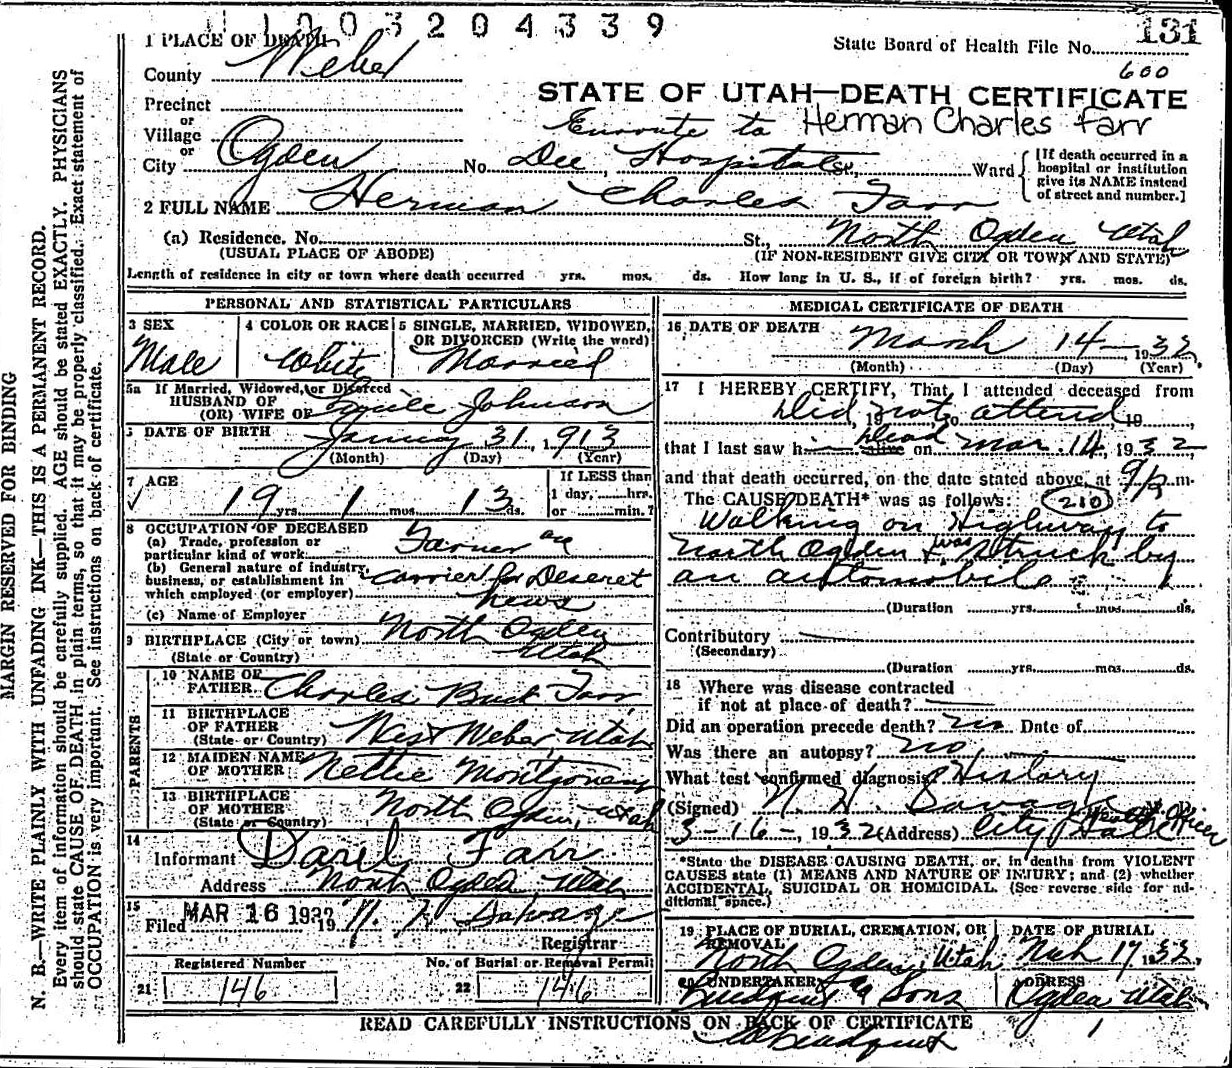 1003204339
131
State Board of Health File No.
600
1 PLACE OF DEATH
County Weber
STATE OF UTAH—DEATH CERTIFICATE
Precinct
or
Village
or
City Ogden No. Dee Hospital St., Ward
Enroute to Herman Charles Farr
[If death occurred in a hospital or institution give its NAME instead of street and number.]
2 FULL NAME Herman Charles Farr
(a) Residence. No. St., North Ogden Utah
(USUAL PLACE OF ABODE) (IF NON-RESIDENT GIVE CITY OR TOWN AND STATE)
Length of residence in city or town where death occurred yrs. mos. ds. How long in U. S., if of foreign birth? yrs. mos. ds.
PERSONAL AND STATISTICAL PARTICULARS
3 SEX Male
4 COLOR OR RACE White
5 SINGLE, MARRIED, WIDOWED, OR DIVORCED (Write the word) Married
5a If Married, Widowed, or Divorced
HUSBAND OF
(OR) WIFE OF Johnson
DATE OF BIRTH January 31, 1913
(Month) (Day) (Year)
7 AGE 19 yrs. 1 mos. 13 ds.
If LESS than
1 day, hrs.
or min.?
8 OCCUPATION OF DECEASED
(a) Trade, profession or
particular kind of work Farmer
(b) General nature of industry,
business, or establishment in
which employed (or employer) carrier for Deseret News
(c) Name of Employer
9 BIRTHPLACE (City or town) North Ogden
(State or Country) Utah
PARENTS
10 NAME OF
FATHER Charles Farr
11 BIRTHPLACE
OF FATHER
(State or Country) West Weber, Utah
12 MAIDEN NAME
OF MOTHER Nettie Montgomery
13 BIRTHPLACE
OF MOTHER
(State or Country) North Ogden, Utah
14
Informant Darel Farr
Address North Ogden Utah
15
Filed MAR 16 1932 19
Registrar
Registered Number No. of Burial or Removal Permit
21 146 22 146
MEDICAL CERTIFICATE OF DEATH
16 DATE OF DEATH March 14 1932
(Month) (Day) (Year)
17 I HEREBY CERTIFY, That I attended deceased from
Did not attend, 19
that I last saw h dead alive on Mar. 14, 1932
and that death occurred, on the date stated above, at 9 P. m.
The CAUSE DEATH* was as follows: 210
Walking on Highway to
North Ogden & was struck by
an automobile
(Duration yrs. mos. ds.
Contributory
(Secondary)
(Duration yrs. mos. ds.
18 Where was disease contracted
if not at place of death?
Did an operation precede death? no Date of
Was there an autopsy? no
What test confirmed diagnosis? History
(Signed) Savage Health Officer
3-16-, 1932 (Address) City Hall
*State the DISEASE CAUSING DEATH, or, in deaths from VIOLENT
CAUSES state (1) MEANS AND NATURE OF INJURY; and (2) whether
ACCIDENTAL, SUICIDAL OR HOMICIDAL. (See reverse side for additional space.)
19 PLACE OF BURIAL, CREMATION, OR REMOVAL
North Ogden, Utah
DATE OF BURIAL
Mch 17 1932
20 UNDERTAKER & Sons
ADDRESS Ogden Utah
READ CAREFULLY INSTRUCTIONS ON BACK OF CERTIFICATE
1
MARGIN RESERVED FOR BINDING
N. B.—WRITE PLAINLY WITH UNFADING INK—THIS IS A PERMANENT RECORD.
Every item of information should be carefully supplied. AGE should be stated EXACTLY. PHYSICIANS
should state CAUSE OF DEATH in plain terms, so that it may be properly classified. Exact statement of
OCCUPATION is very important. See instructions on back of certificate.